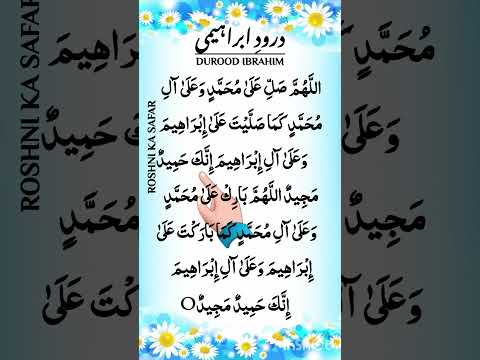 درودِ ابراہیمی
DUROOD IBRAHIM
ROSHNI KA SAFAR
اللَّهُمَّ صَلِّ عَلَىٰ مُحَمَّدٍ وَعَلَىٰ آلِ
مُحَمَّدٍ كَمَا صَلَّيْتَ عَلَىٰ إِبْرَاهِيمَ
وَعَلَىٰ آلِ إِبْرَاهِيمَ إِنَّكَ حَمِيدٌ
مَجِيدٌ اللَّهُمَّ بَارِكْ عَلَىٰ مُحَمَّدٍ
وَعَلَىٰ آلِ مُحَمَّدٍ كَمَا بَارَكْتَ عَلَىٰ
إِبْرَاهِيمَ وَعَلَىٰ آلِ إِبْرَاهِيمَ
إِنَّكَ حَمِيدٌ مَجِيدٌ